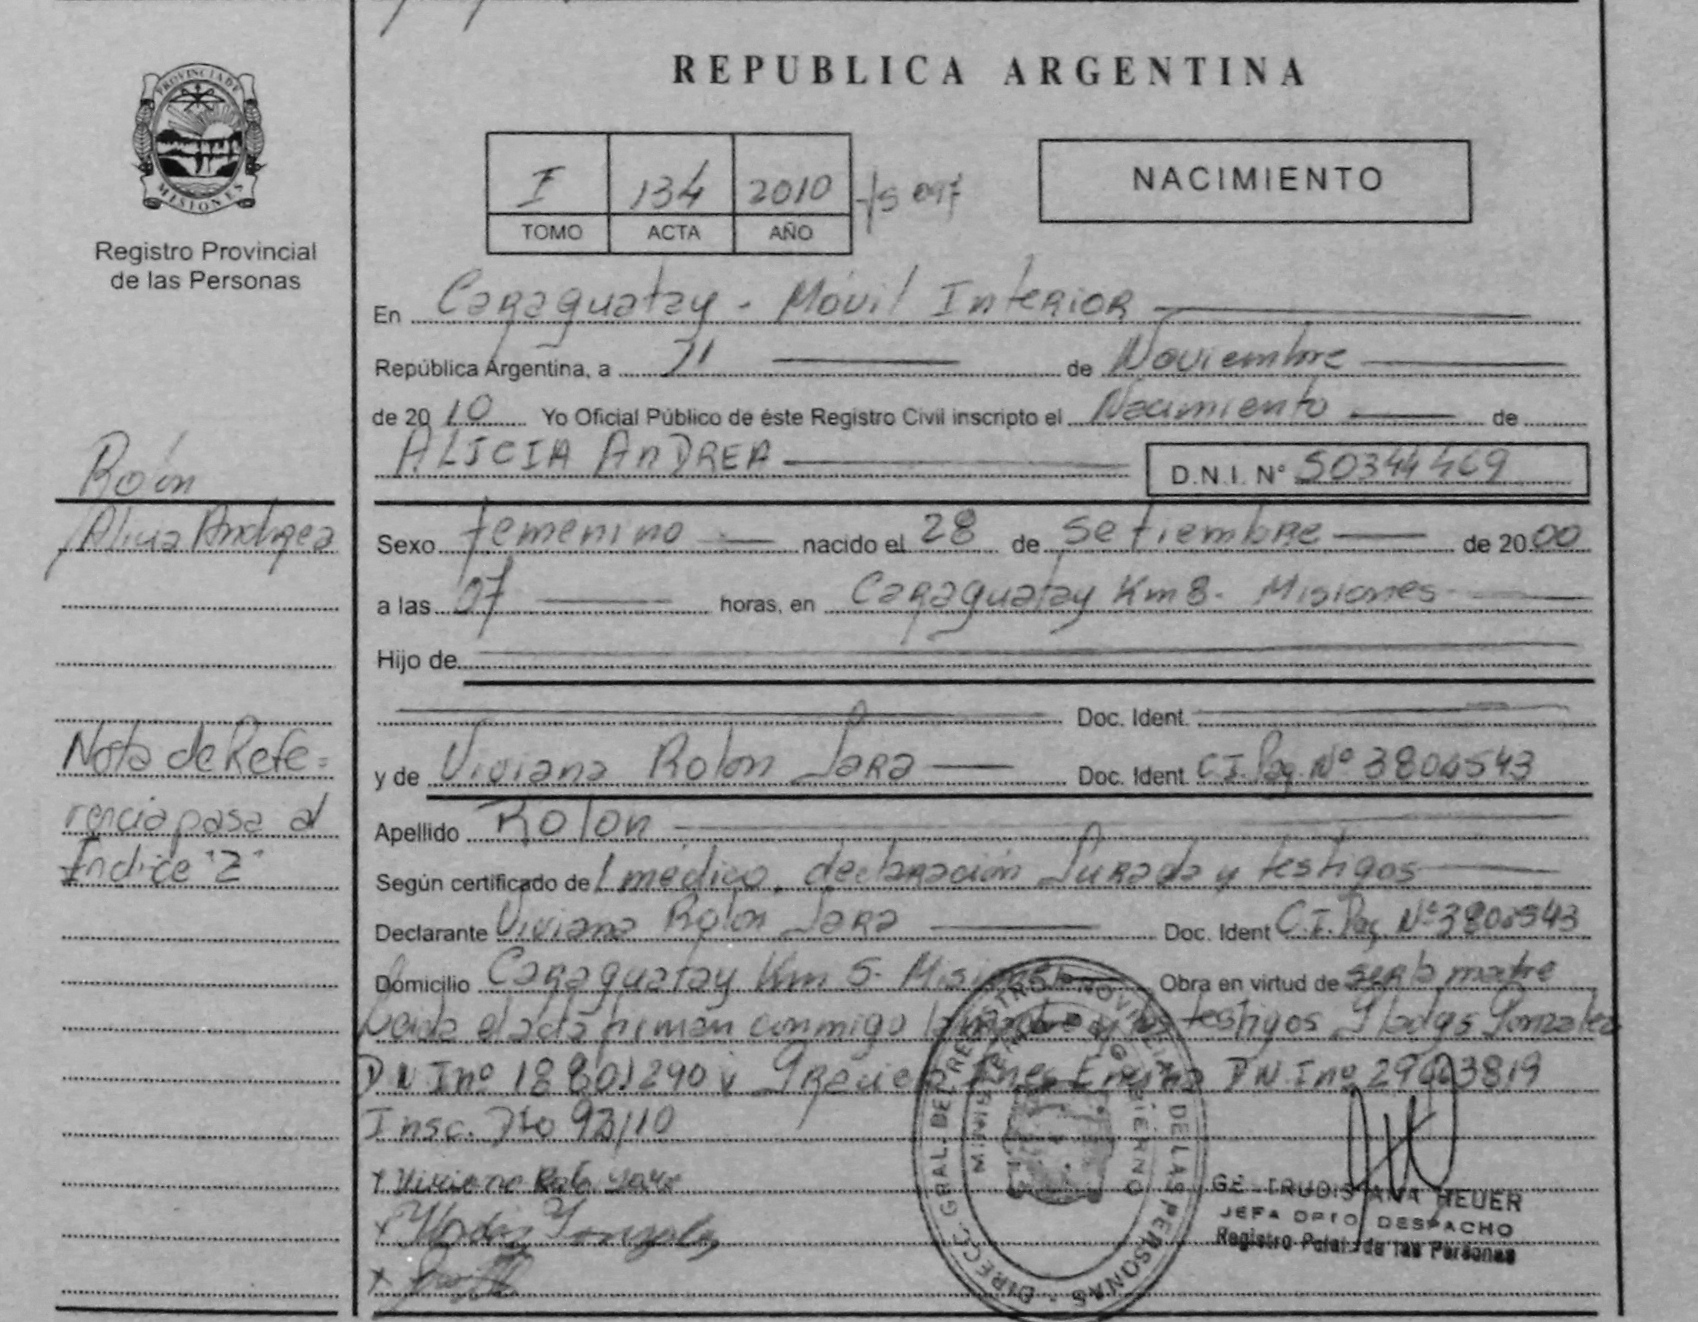 PROVINCIA DE
MISIONES
Registro Provincial
de las Personas
Rolón
Alicia Andrea
Nota de Refe=
rencia pasa al
Indice "Z"
REPUBLICA ARGENTINA
I 134 2010
TOMO ACTA AÑO
NACIMIENTO
En Caraguatay - Móvil Interior
República Argentina, a 11 de Noviembre
de 2010 Yo Oficial Público de éste Registro Civil inscripto el Nacimiento de
ALICIA ANDREA D.N.I. Nº 50344469
Sexo femenino nacido el 28 de setiembre de 2000
a las 07 horas, en Caraguatay Km 8. Misiones
Hijo de
Doc. Ident.
y de Viviana Rolon Jara Doc. Ident. C.I. Pag. Nº 3804543
Apellido Rolon
Según certificado del médico, declaración Jurada y testigos
Declarante Viviana Rolon Jara Doc. Ident C.I. Pag Nº 3804543
Domicilio Caraguatay Km 5. Misiones Obra en virtud de ser la madre
Leida el acta firman conmigo la madre y los testigos Gladys Gonzalez
DNI nº 18801290 y Graciela Ines DNI nº 29003819
Insc. Dto 92/10
x Viviana Rolon Jara
x Gladis Gonzalez
x
DIRECC. GRAL. DEL REGISTRO PROVINCIAL DE LAS PERSONAS
MINISTERIO DE GOBIERNO
GERTRUDIS ANA HEUER
JEFA DPTO. DESPACHO
Registro Pcial. de las Personas